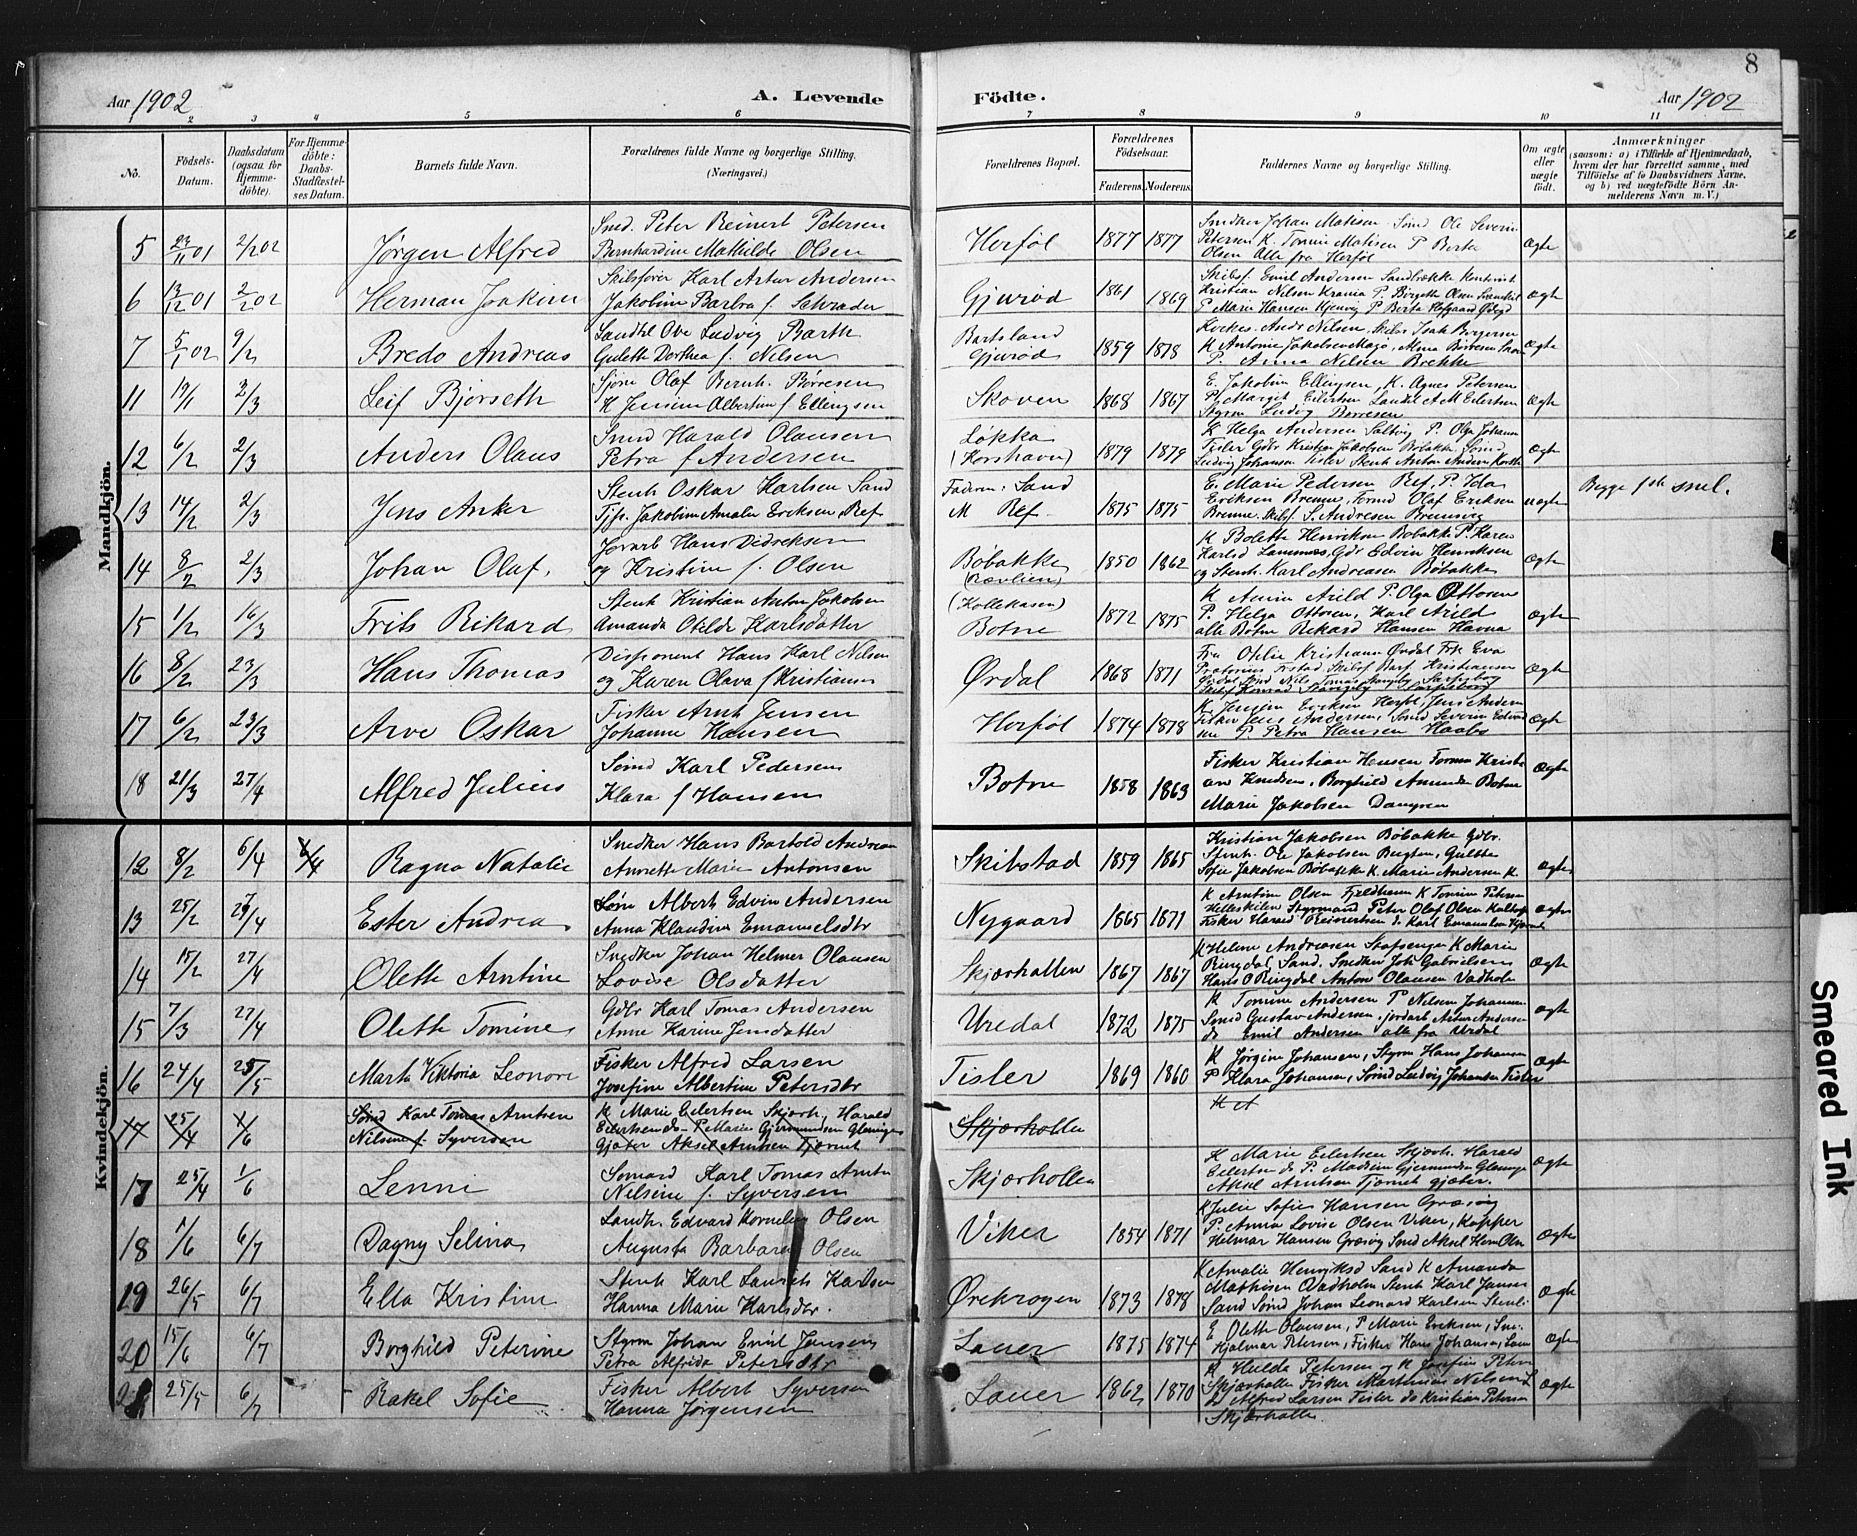 8
Aar 1902
A. Levende
Födte.
Aar 1902
1 2 3 4 5 6 7 8 9 10 11
No.
Födsels-Datum.
Daabsdatum (ogsaa för Hjemmedöbte).
For Hjemmedöbte: Daabs-Stadfæstelses Datum.
Barnets fulde Navn.
Forældrenes fulde Navne og borgerlige Stilling. (Næringsvei.)
Forældrenes Bopæl.
Forældrenes Födselsaar.
Faderens. Moderens.
Faddernes Navne og borgerlige Stilling.
Om ægte eller uægte födt.
Anmærkninger
(saasom: a) i Tilfælde af Hjemmedaab, hvem der har forrettet samme, med Tilföielse af to Daabsvidners Navne, og b) ved uægtefödte Börn Anmelderens Navn m. V.)
Mandkjön.
5 23/11 01 2/2 02 Jørgen Alfred
Smed. Peter Reinert Petersen
Bernhardine Mathilde Olsen
Herføl 1877 1877
Snedker Johan Matisen Sømd Ole Severin
Petersen K. Tomine Matisen P Berta
Olsen Alle fra Herføl
Ægte
6 13/12 01 2/2 02 Herman Joakim
Skibsfører Karl Artur Andersen
Jakobine Barbra f. Schrader
Gjurød 1861 1869
Skibsf. Emil Andersen Sandbrække
Kristian Nilsen Krania P. Birgethe Olsen
P Marie Hansen P Berta
Ægte
7 5/1 02 9/2 Bredo Andreas
Landhl Ove Ludvig Barth
Gulette Dorthea f. Nilsen
Bartsland
Gjurød 1859 1878
Andr Nilsen, Isak Børgersen
K Antonie Jakobsen
P. Anna Nilsen Brekke
Ægte
11 19/1 2/3 Leif Bjørseth
Sjøm Olaf Bernh. Børresen
K Jensine Albertine f Ellingsen
Skoven 1868 1867
E. Jakobine Ellingsen, K. Agnes Petersen
P. Margit Eilertsen Landhl A M Eilertsen
Styrm Ludvig Børresen
Ægte
12 6/2 2/3 Anders Olaus
Smed Harald Olausen
Petra f Andersen
Løkka
(Korshavn) 1879 1879
K Helga Andersen Saltvig P. Olga Johansen
Tisler Gdbr Kristian Jakobsen Bøbakke Sømd
Ludvig Johansen Tisler Stenh Anton Andersen Korsh
Ægte
13 14/2 2/3 Jens Anker
Stenh Oskar Karlsen Sand
Tjp. Jakobine Amalie Eriksen, Ref
Faderen: Sand
M Ref 1875 1875
E. Marie Pedersen Ref, P. Ida
Eriksen Bremne, Tømd Olaf Eriksen
Bremne. Skibsf. S. Andresen Bremsvig
uægte Begge 1ste snil.
14 8/2 2/3 Johan Olaf,
Jorarb Hans Didreksen
og Kristine f. Olsen
Bøbakke
(Rævlien) 1850 1862
K Bolette Henriksen Bobakke P. Karen
Karlsd Lammers, Gdr Edvin Henriksen
og Stenh. Karl Andreasen Bøbakke
Ægte
15 1/2 16/3 Frits Rikard
Stenh Kristian Anton Jakobsen
Amanda Otilde Karlsdatter
(Kollekasen)
Botne 1872 1875
K Anna Arild P. Olga Ottosen
P. Helga Ottosen, Karl Arild
alle Botne Rikard Hansen Havna
Ægte
16 8/2 23/3 Hans Thomas
Disponent Hans Karl Nilsen
og Karen Olava f Kristiansen
Ørdal 1868 1871
Fru Otilie Kristiansen Ørdal Frk Eva
Kristiansen
Ørdal Nils Tomas Stangeby Sarpsborg
Skibsf Konrad Stangeby Sarpsborg
Ægte
17 6/2 23/3 Arve Oskar
Fisker Arnt Jensen
Johanne Hansen
Herføl 1874 1878
K. Jensine Eriksen Herføl, Jens Andersen
Fisker Jens Andersen, Sømd Severin Edvard
sen P. Petra Hansen Haabø
Ægte
18 21/3 27/4 Alfred Julius
Sømd Karl Pedersen
Klara f Hansen
Botne 1858 1863
Fisker Kristian Hansen Tømm Kristi
an Knudsen, Borghild Amunds Botne
Marie Jakobsen
Ægte
Kvindekjön.
12 8/2 6/4 6/4 Ragna Natalie
Snedker Hans Bartold Andersen
Annette Marie Antonsen
Skibstad 1859 1865
Kristian Jakobsen Bøbakke Gdbr.
Stenh. Ole Jakobsen Bugten, Gulette
Sofie Jakobsen Bøbakke K. Marie Andersen K
Ægte
13 25/2 27/4 Ester Andrea
Albert Edvin Andersen
Anna Klaudine Emanuelsdtr
Nygaard 1865 1871
K Arntine Olsen Fjeldheim K Tomine Petersen
Helleskilen Styrmand Peter Olaf Olsen
Fisker Harald Reinertsen do Karl Emanuelsen
Ægte
14 15/2 27/4 Olette Arntine
Snedker Johan Helmer Olausen
Lovise Olsdatter
Skjærhallen 1867 1867
K Helene Andreasen Stafsenga K Marie
Ringdal Sand. Snedker Joh Gabrielsen
Hans O Ringdal Anton Olausen Vadholm
Ægte
15 7/3 27/4 Olette Tomine
Gdbr Karl Tomas Andersen
Anne Karine Jensdatter
Uredal 1872 1875
K Tomine Andersen P Nilsen Johannesen
Smed Gustav Andersen, jordarb Artur Andersen
do Emil Andersen alle fra Urdal
Ægte
16 24/4 25/5 Marta Viktoria Leonore
Fisker Alfred Larsen
Josefine Albertine Petersdtr
Tisler 1869 1860
K Jørgine Johansen, Styrm Hans Johansen
P Klara Johansen, Sømd Ludvig Johansen Tisler
Ægte
17 25/4 1/6
Sømd Karl Tomas Arntsen
Nilsine f. Syversen
K Marie Eilertsen Skjærh, Harald
Eilertsen do P Marie Gjermundsen Glenige
Gjæter Aksel Arntsen Tjernet
Skjærhollen
K A
17 25/4 1/6 Lenni
Sømand Karl Tomas Arnts
Nilsine f. Syversen
Skjærhollen
K Marie Eilertsen Skjærh. Harald
Eilertsen do P. Madsine Gjermundsen Glenige
Aksel Arntsen Tjernet gjæter.
Ægte
18 1/6 6/7 Dagny Selina
Landh. Edvard Kornelius Olsen
Augusta Barbara Olsen
Viker 1854 1871
K Julie Sofie Hansen Græsvig
P. Anna Lovise Olsen Viker, Kopper
Hilmar Hansen Græsvig Smd Aksel Herm Olsen
Ægte
19 26/5 6/7 Ella Kristine
Stenh Karl Laurits Karlsen
Hanna Marie Karlsdtr.
Ørekrogen 1873 1878
K Amalie Henriksd Sand K Amanda
Mathisen Vadholm Stenh Karl Jansen
Sand Sømd Johan Leonard Karlsen
Ægte
20 15/6 6/7 Borghild Peterine
Styrm Johan Emil Jensen
Petra Alfrida Petersdtr
Lauer 1875 1874
E Olette Olausen, P Marie Eriksen,
Hjalmar Petersen, Fisker Hans Johansen, Lauer
Ægte
21 25/5 6/7 Rakel Sofie
Fisker Albert Syversen
Hanna Jørgensen
Lauer 1862 1870
K Hulda Petersen og K Josefine Petersen
Skjærhalle Fisker Martinius Nilsen
do Alfred Larsen Tisler do Kristian Petersen
Skjærhalle.
Ægte
Smeared Ink